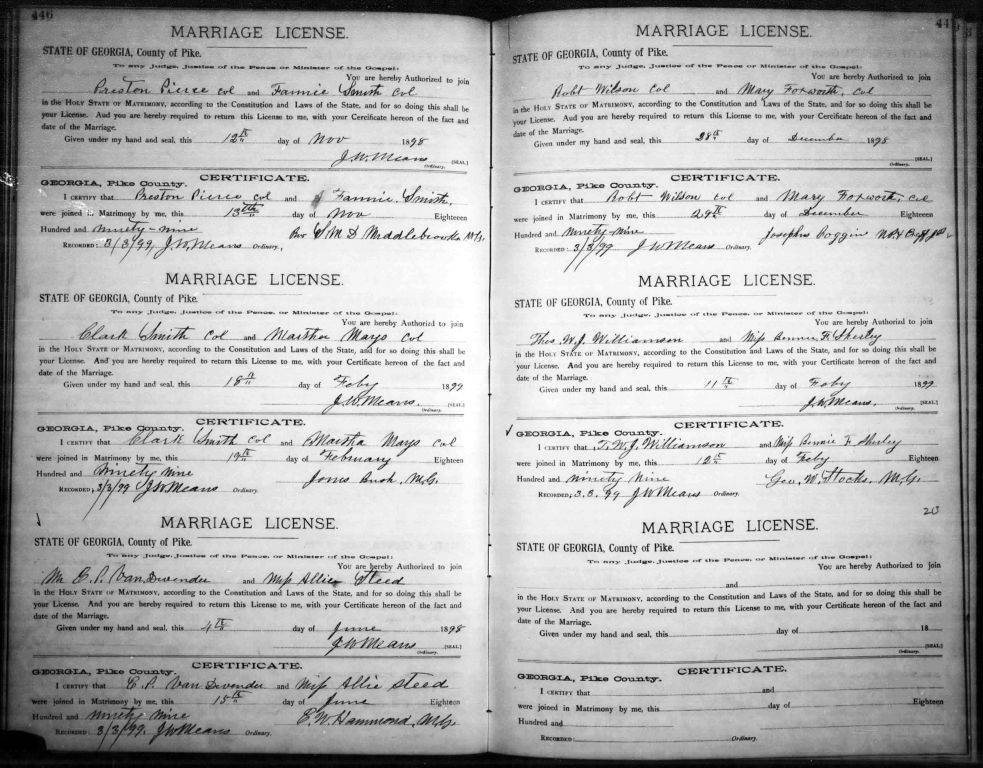 446
MARRIAGE LICENSE.
STATE OF GEORGIA, County of Pike.
To any Judge, Justice of the Peace or Minister of the Gospel:
You are hereby Authorized to join
Preston Pierce Col and Fannie Smith Col
in the HOLY STATE OF MATRIMONY, according to the Constitution and Laws of the State, and for so doing this shall be
your License. And you are hereby required to return this License to me, with your Cereificate hereon of the fact and
date of the Marriage.
Given under my hand and seal, this 12th day of Nov 1898
J.W. Means [SEAL.]
Ordinary.
CERTIFICATE.
GEORGIA, Pike County.
I CERTIFY that Preston Pierce Col and Fannie Smith,
were joined in Matrimony by me, this 13th day of Nov Eighteen
Hundred and ninety-nine Rev S. M. D Middlebrooks M.G.
RECORDED: 3/3/99, J.W. Means Ordinary,
MARRIAGE LICENSE.
STATE OF GEORGIA, County of Pike.
To any Judge, Justice of the Peace, or Minister of the Gospel:
You are hereby Authorized to join
Clark Smith Col and Martha Mays Col
in the HOLY STATE OF MATRIMONY, according to the Constitution and Laws of the State, and for so doing this shall be
your License. And you are hereby required to return this License to me, with your Certificate hereon of the fact and
date of the Marriage.
Given under my hand and seal, this 18th day of Feby 1899
J.W. Means. [SEAL.]
Ordinary.
CERTIFICATE.
GEORGIA, Pike County.
I CERTIFY that Clark Smith Col and Martha Mays Col
were joined in Matrimony by me, this 19th day of February Eighteen
Hundred and Ninety Nine M.G.
RECORDED; 3/3/99 J W Means Ordinary.
MARRIAGE LICENSE.
STATE OF GEORGIA, County of Pike.
To any Judge, Justice of the Peace, or Minister of the Gospel:
You are hereby Authorized to join
Mr C. P. Van Devender and Miss Allie Steed
in the HOLY STATE OF MATRIMONY, according to the Constitution and Laws of the State, and for so doing this shall be
your License. And you are hereby required to return this License to me, with your Certificate hereon of the fact and
date of the Marriage.
Given under my hand and seal, this 4th day of June 1898
J W Means [SEAL.]
Ordinary.
CERTIFICATE.
GEORGIA, Pike County.
I CERTIFY that C. P. Van Devender and Miss Allie Steed
were joined in Matrimony by me, this 15th day of June Eighteen
Hundred and ninety nine E. W. Hammond, M.G.
RECORDED: 3/3/99. J W Means Ordinary.
MARRIAGE LICENSE.
STATE OF GEORGIA, County of Pike.
To any Judge, Justice of the Peace or Minister of the Gospel:
You are hereby Authorized to join
Robt Wilson Col and Mary Foxworth, Col
in the HOLY STATE OF MATRIMONY, according to the Constitution and Laws of the State, and for so doing this shall be
your License. And you are hereby required to return this License to me, with your Cereificate hereon of the fact and
date of the Marriage.
Given under my hand and seal, this 28th day of December 1898
[SEAL.]
Ordinary.
CERTIFICATE.
GEORGIA, Pike County.
I CERTIFY that Robt Wilson Col and Mary Foxworth, Col
were joined in Matrimony by me, this 29th day of December Eighteen
Hundred and ninety-nine Josephus
RECORDED: 3/3/99 J W Means Ordinary.
MARRIAGE LICENSE.
STATE OF GEORGIA, County of Pike.
To any Judge, Justice of the Peace, or Minister of the Gospel:
You are hereby Authorized to join
Thos. W. J. Williamson and Miss Bennie F. Shirley
in the HOLY STATE OF MATRIMONY, according to the Constitution and Laws of the State, and for so doing this shall be
your License. And you are hereby required to return this License to me, with your Certificate hereon of the fact and
date of the Marriage.
Given under my hand and seal, this 11th day of Feby 1899
J W Means. [SEAL.]
Ordinary.
CERTIFICATE.
GEORGIA, Pike County.
I CERTIFY that T. W. J. Williamson and Miss Bennie F Shirley
were joined in Matrimony by me, this 12th day of Feby Eighteen
Hundred and ninety nine Geo. W. Stocks, M.G.
RECORDED; 3.3.99 J W Means Ordinary.
MARRIAGE LICENSE.
STATE OF GEORGIA, County of Pike.
To any Judge, Justice of the Peace, or Minister of the Gospel:
You are hereby Authorized to join
and
in the HOLY STATE OF MATRIMONY, according to the Constitution and Laws of the State, and for so doing this shall be
your License. And you are hereby required to return this License to me, with your Certificate hereon of the fact and
date of the Marriage.
Given under my hand and seal, this day of 18
[SEAL.]
Ordinary.
CERTIFICATE.
GEORGIA, Pike County.
I CERTIFY that and
were joined in Matrimony by me, this day of Eighteen
Hundred and
RECORDED: Ordinary.